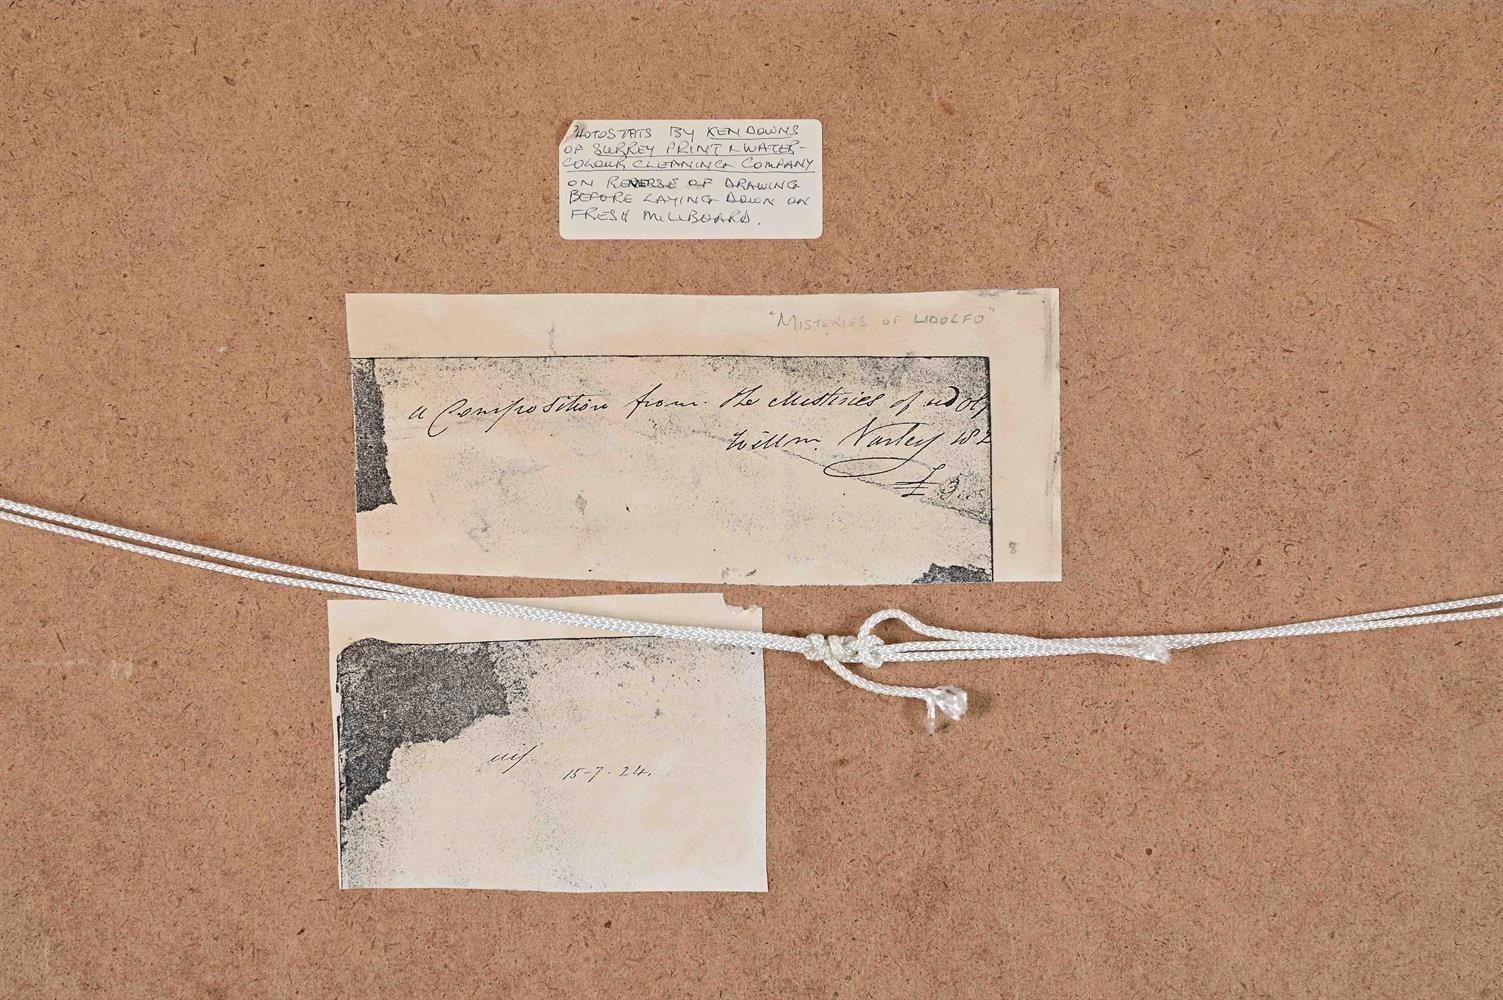 PHOTOSTATS BY KEN DOWNS
OF SURREY PRINT & WATER-
COLOUR CLEANING COMPANY
ON REVERSE OF DRAWING
BEFORE LAYING DOWN ON
FRESH MILLBOARD.
"MISTERIES OF UDOLFO"
a Composition from. the Misteries of udolf
Willm. Varley 182
£ 3
8
15-7-24.